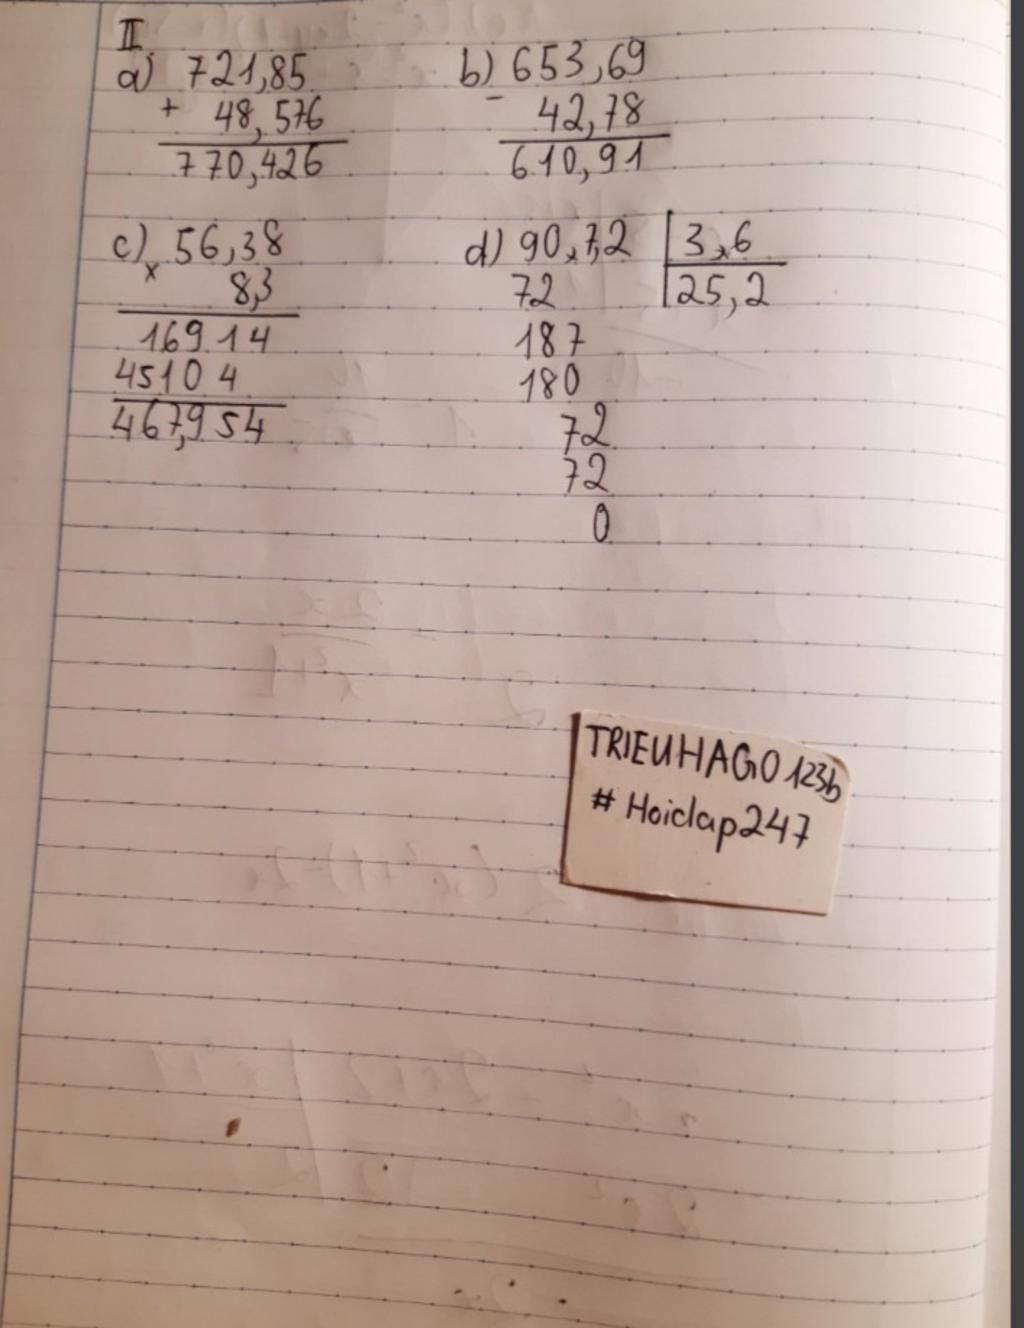 II
a) 721,85
+ 48,576
770,426
b) 653,69
- 42,78
610,91
c) 56,38
x 8,3
16914
45104
467,954
d) 90,7,2 | 3,6
72 | 25,2
187
180
72
72
0
TRIEUHAGO 123b
# Hoidap247